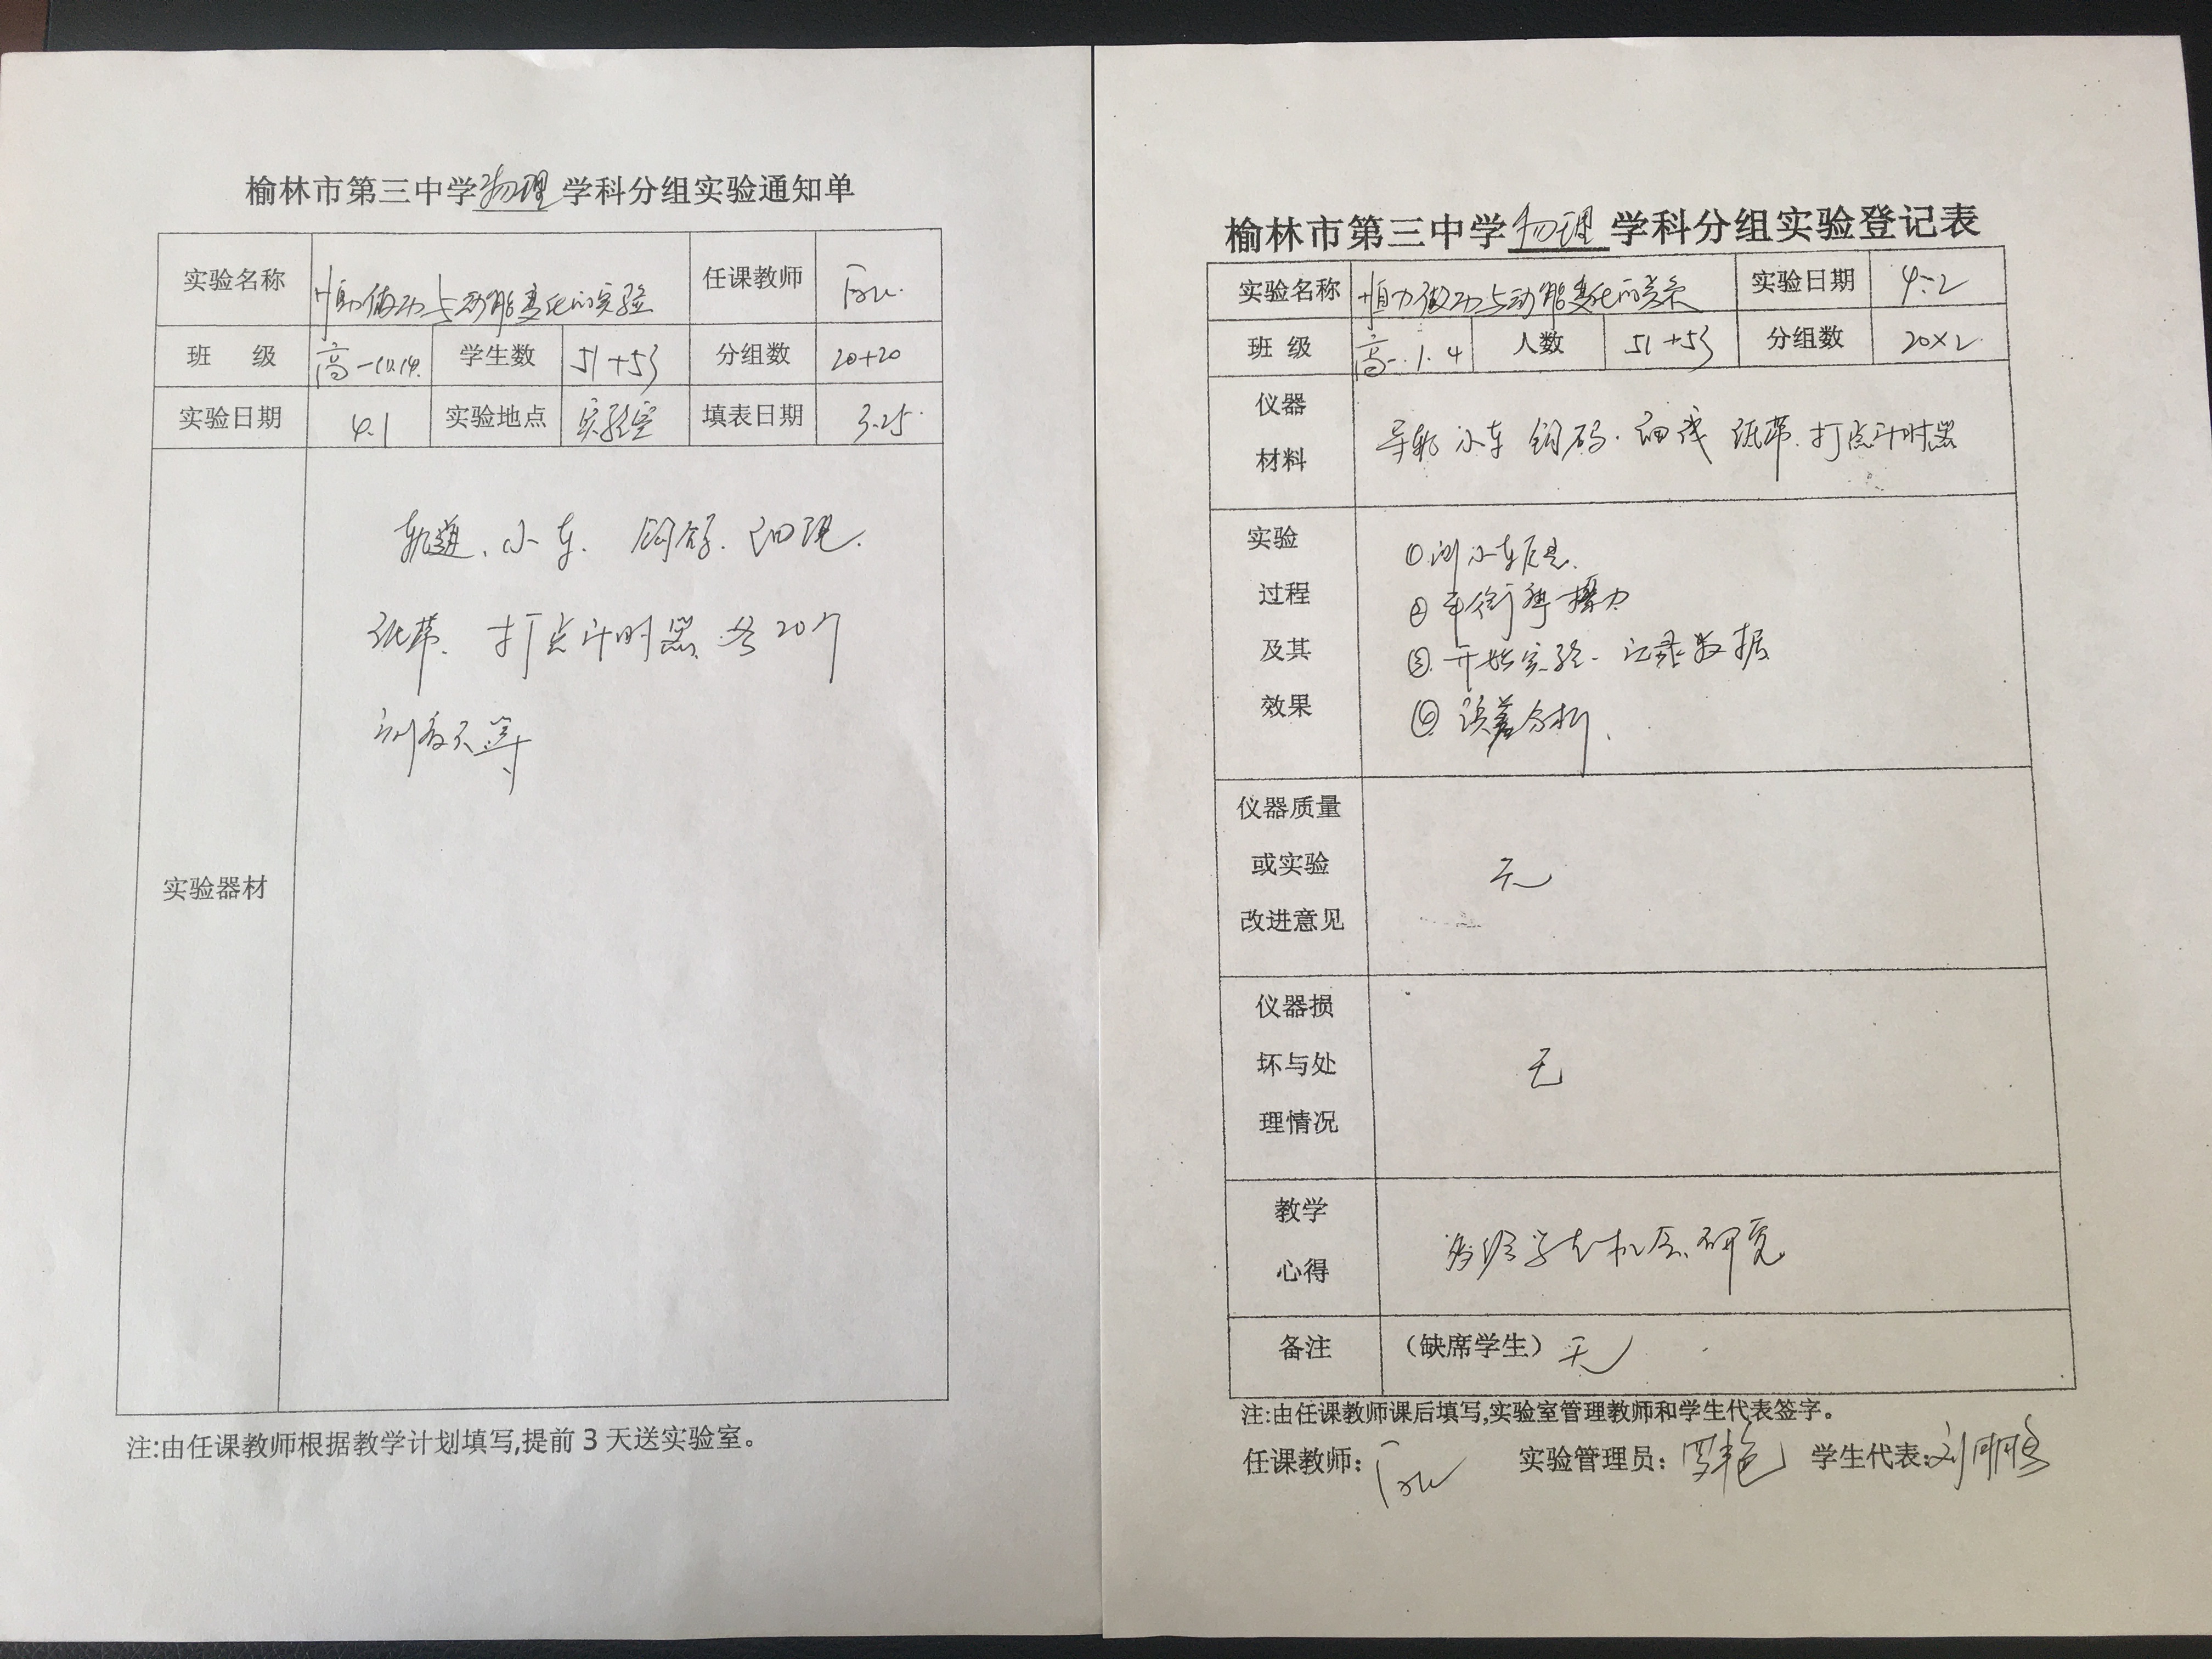 榆林市第三中学物理学科分组实验通知单
实验名称 恒力做功与动能变化的实验 任课教师
班 级 高一 学生数 51+53 分组数 20+20
实验日期 4.1 实验地点 实验室 填表日期 3.25
实验器材
轨道、小车、钩码、细线、
纸带、打点计时器 各20个
刻度尺等
注:由任课教师根据教学计划填写,提前3天送实验室。
榆林市第三中学物理学科分组实验登记表
实验名称 恒力做功与动能变化的关系 实验日期 4.2
班 级 高一.1.4 人数 51+53 分组数 20×2
仪器
材料
导轨 小车 钩码.细线 纸带.打点计时器
实验
过程
及其
效果
①测小车质量.
②平衡摩擦力
③.开始实验.记录数据
④误差分析、
仪器质量
或实验
改进意见
无
仪器损
坏与处
理情况
无
教学
心得
多给学生机会研究
备注 (缺席学生) 无
注:由任课教师课后填写,实验室管理教师和学生代表签字。
任课教师: 实验管理员: 学生代表: